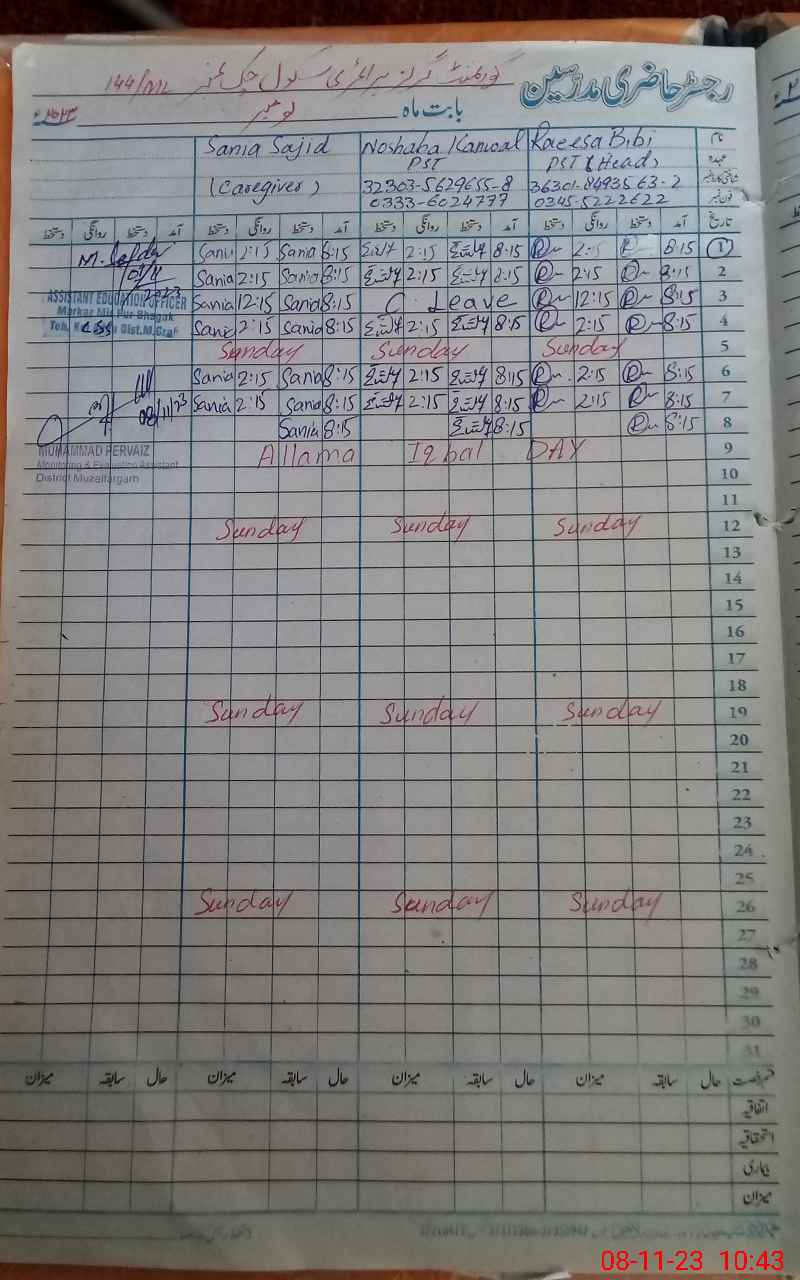 رجسٹر حاضری مدرسین گورنمنٹ گرلز پرائمری سکول چک نمبر 144/ML
بابت ماہ نومبر ۲۰۲۳ء
نام Raeesa Bibi Noshaba Kanwal Sania Sajid
عہدہ PST (Head) PST (Caregiver)
36301-8493563-2 32303-5629655-8
فون نمبر 0345-5222622 0333-6024777
تاریخ آمد دستخط روانگی دستخط آمد دستخط روانگی دستخط آمد دستخط روانگی دستخط آمد دستخط روانگی دستخط
1 8:15 2:15 8:15 2:15 Sania 8:15 Sania 2:15
2 8:15 2:15 8:15 2:15 Sania 8:15 Sania 2:15
3 8:15 12:15 C. Leave Sania 8:15 Sania 12:15
ASSISTANT EDUCATION OFFICER
4 8:15 2:15 8:15 2:15 Sania 8:15 Sania 2:15
5 Sunday Sunday Sunday
6 8:15 2:15 8:15 2:15 Sania 8:15 Sania 2:15
7 8:15 2:15 8:15 2:15 Sania 8:15 Sania 2:15 08/11/23
8 8:15 8:15 Sania 8:15
9 Allama Iqbal DAY
MUHAMMAD PERVAIZ
Monitoring & Evaluation Assistant
District Muzaffargarh
10
11
12 Sunday Sunday Sunday
13
14
15
16
17
18
19 Sunday Sunday Sunday
20
21
22
23
24
25
26 Sunday Sunday Sunday
27
28
29
30
31
قسم رخصت حال سابقہ میزان حال سابقہ میزان حال سابقہ میزان حال سابقہ میزان
اتفاقیہ
استحقاقیہ
بیماری
میزان
08-11-23 10:43